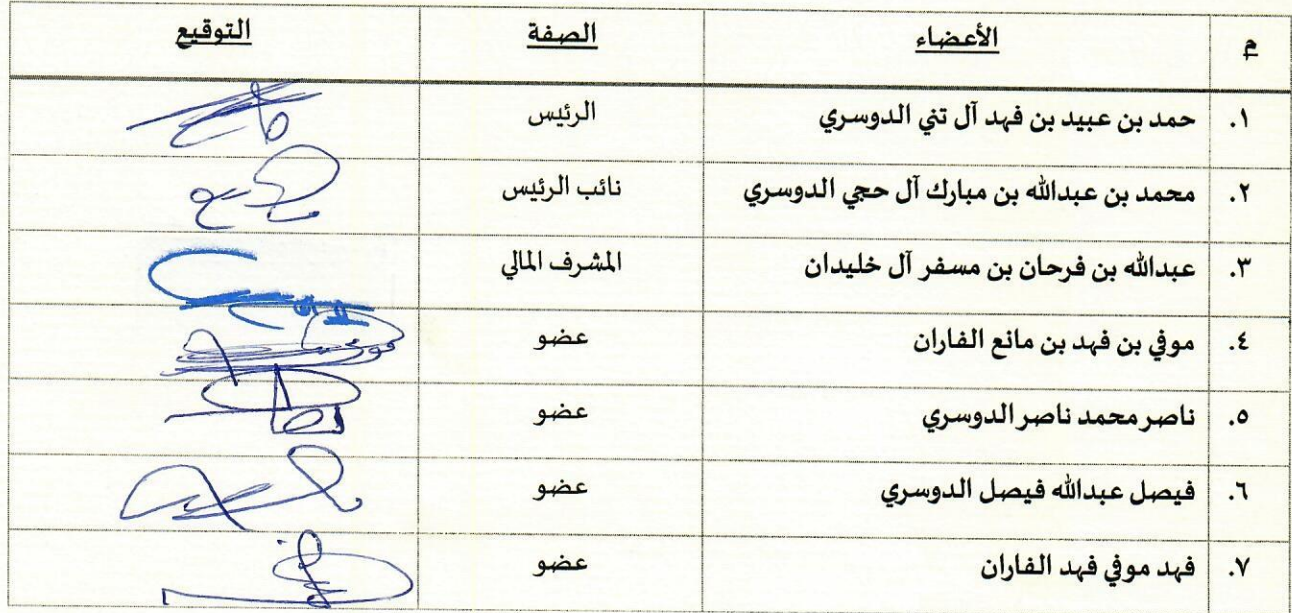 م الأعضاء الصفة التوقيع
١. حمد بن عبيد بن فهد آل تني الدوسري الرئيس
٢. محمد بن عبدالله بن مبارك آل حجي الدوسري نائب الرئيس
٣. عبدالله بن فرحان بن مسفر آل خليدان المشرف المالي
٤. موفي بن فهد بن مانع الفاران عضو
٥. ناصر محمد ناصر الدوسري عضو
٦. فيصل عبدالله فيصل الدوسري عضو
٧. فهد موفي فهد الفاران عضو